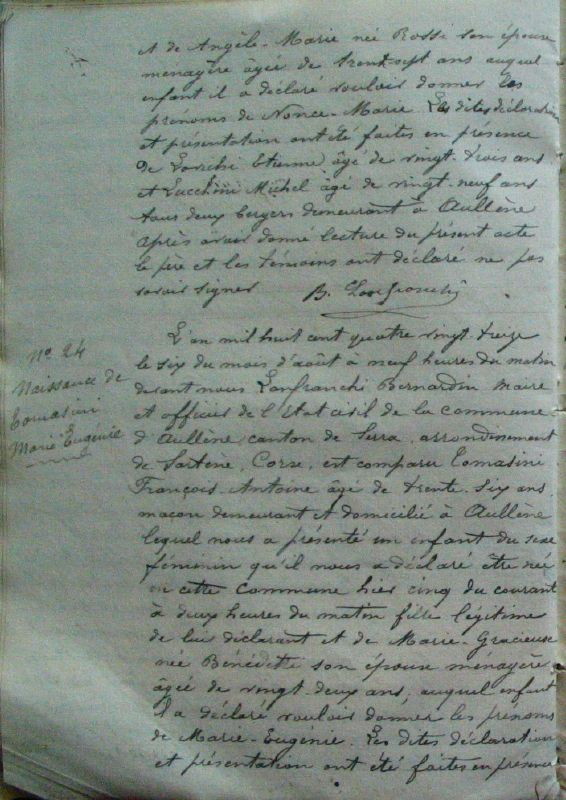 et de Angèle-Marie née Rossi son épouse
ménagère âgée de trente sept ans auquel
enfant il a déclaré vouloir donner les
prénoms de Nonce-Marie. Les dites déclaration
et présentation ont été faites en présence
de Étienne âgé de vingt-trois ans
et Lucchini Michel âgé de vingt-neuf ans
tous deux bergers demeurant à Aullène
Après avoir donné lecture du présent acte
le père et les témoins ont déclaré ne pas
savoir signer B. Lanfranchi
N° 24
Naissance de
Tomasini
Marie Eugénie
L'an mil huit cent quatre vingt-treize
le six du mois d'août à neuf heures du matin
devant nous Lanfranchi Bernardin Maire
et officier de l'État civil de la commune
d'Aullène, canton de Serra, arrondissement
de Sartène, Corse, est comparu Tomasini
François-Antoine âgé de trente-six ans
maçon demeurant et domicilié à Aullène
lequel nous a présenté un enfant du sexe
féminin qu'il nous a déclaré être née
en cette commune hier cinq du courant
à deux heures du matin fille légitime
de lui déclarant et de Marie-Gracieuse
née Bénédetti son épouse ménagère
âgée de vingt-deux ans, auquel enfant
il a déclaré vouloir donner les prénoms
de Marie-Eugénie. Les dites déclaration
et présentation ont été faites en présence